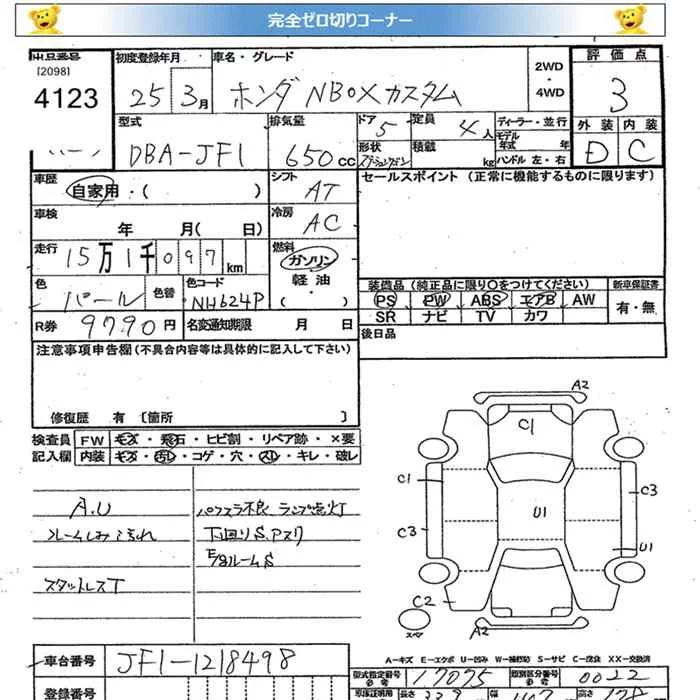 完全ゼロ切りコーナー
出品番号 初度登録年月 車名・グレード 2WD ・ 4WD 評価点
[2098]
4123 25 3月 ホンダ NBOXカスタム 3
型式 排気量 ドア 定員 ディーラー・並行 外装 内装
DBA-JF1 650cc 5 4人 モデル年式 年 D C
形状 積載 kg ハンドル 左・右
車歴 シフト セールスポイント (正常に機能するものに限ります)
自家用・( ) AT
車検 冷房
年 月( 日) AC
走行 燃料
15万1千097km ガソリン
軽油
・( )
色 色替 色コード 装備品 (純正品に限り○をつけてください) 新車保証書
パール NH624P PS PW ABS エアB AW 有・無
R券 9790円 名変通知期限 月 日 SR ナビ TV カワ
注意事項申告欄(不具合内容等は具体的に記入して下さい) 後日品
修復歴 有 [箇所 ]
検査員 FW キズ・飛石・ヒビ割・リペア跡・×要
記入欄 内装 キズ・汚れ・コゲ・穴・スレ・キレ・破レ
A2
C1
C1
C3
U1
C3
U1
C2
A2
スペア
A.U パワスラ不良 ランプ点灯
ルームしみ 汚れ 下回りS.アスリ
E/gルームS
スタットレスT
A-キズ E-エクボ U-凹み W-補修跡 S-サビ C-腐食 XX-交換済
車台番号 JF1-1218498 型式指定番号 参考 17075 類別区分番号 参考 0022
登録番号 車庫証明用 長さ 339 幅 147 高さ 178